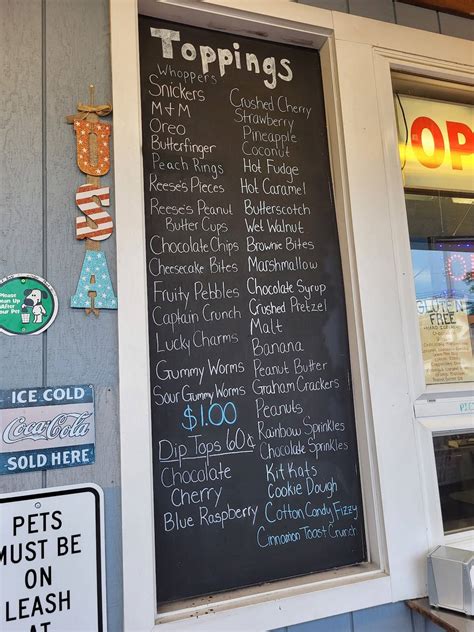 Toppings
Whoppers
Snickers
M&M
Oreo
Butterfinger
Peach Rings
Reese's Pieces
Reese's Peanut
Butter Cups
Chocolate Chips
Cheesecake Bites
Fruity Pebbles
Captain Crunch
Lucky Charms
Gummy Worms
Sour Gummy Worms
$1.00
Dip Tops 60¢
Chocolate
Cherry
Blue Raspberry
Crushed Cherry
Strawberry
Pineapple
Coconut
Hot Fudge
Hot Caramel
Butterscotch
Wet Walnut
Brownie Bites
Marshmallow
Chocolate Syrup
Crushed Pretzel
Malt
Banana
Peanut Butter
Graham Crackers
Peanuts
Rainbow Sprinkles
Chocolate Sprinkles
Kit Kats
Cookie Dough
Cotton Candy Fizzy
Cinnamon Toast Crunch
USA
Please
Clean Up
After
Your
ICE COLD
Coca-Cola
SOLD HERE
PETS
MUST BE
ON
LEASH
AT
OP
GLUTEN
FREE